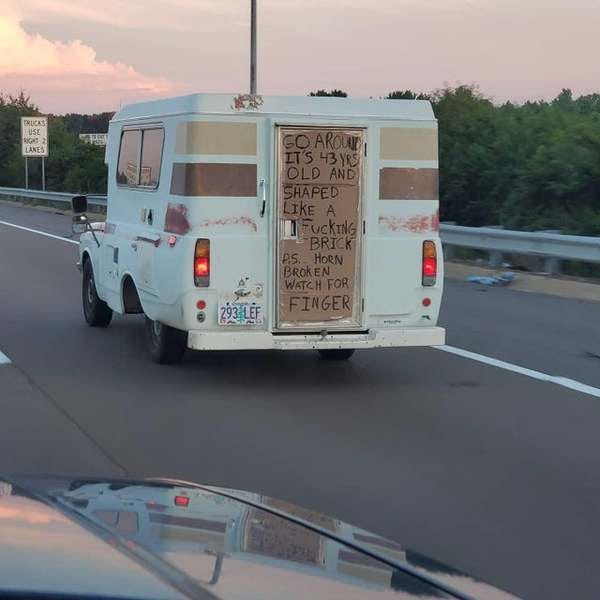 TRUCKS
USE
RIGHT 2
LANES
GO AROUND
IT'S 43 YRS
OLD AND
SHAPED
LIKE A
FUCKING
BRICK
P.S. HORN
BROKEN
WATCH FOR
FINGER
293 LEF